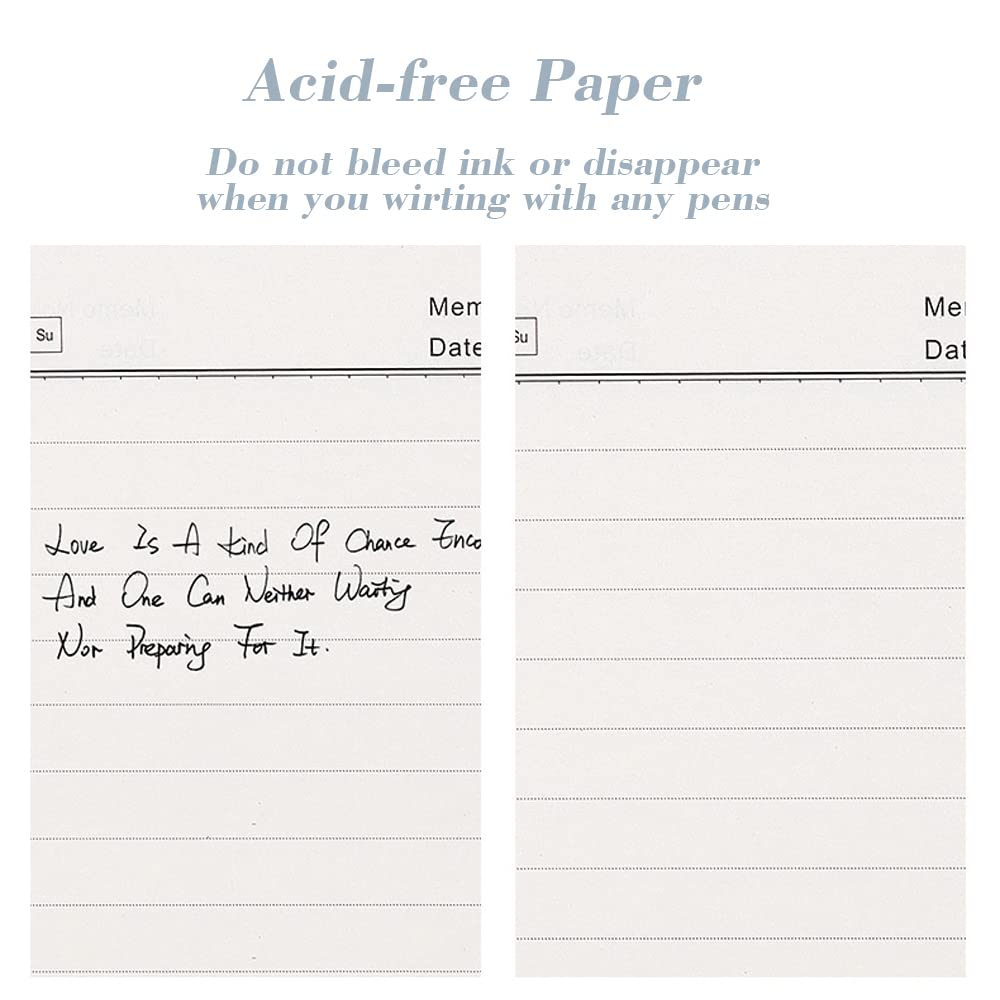 Acid-free Paper
Do not bleed ink or disappear
when you wirting with any pens
Memo No
Mem
Su
Date
Date
Love Is A Kind Of Chance Enco
And One Can Neither Waiting
Nor Preparing For It.
Memo No
Me
Su
Date
Dat